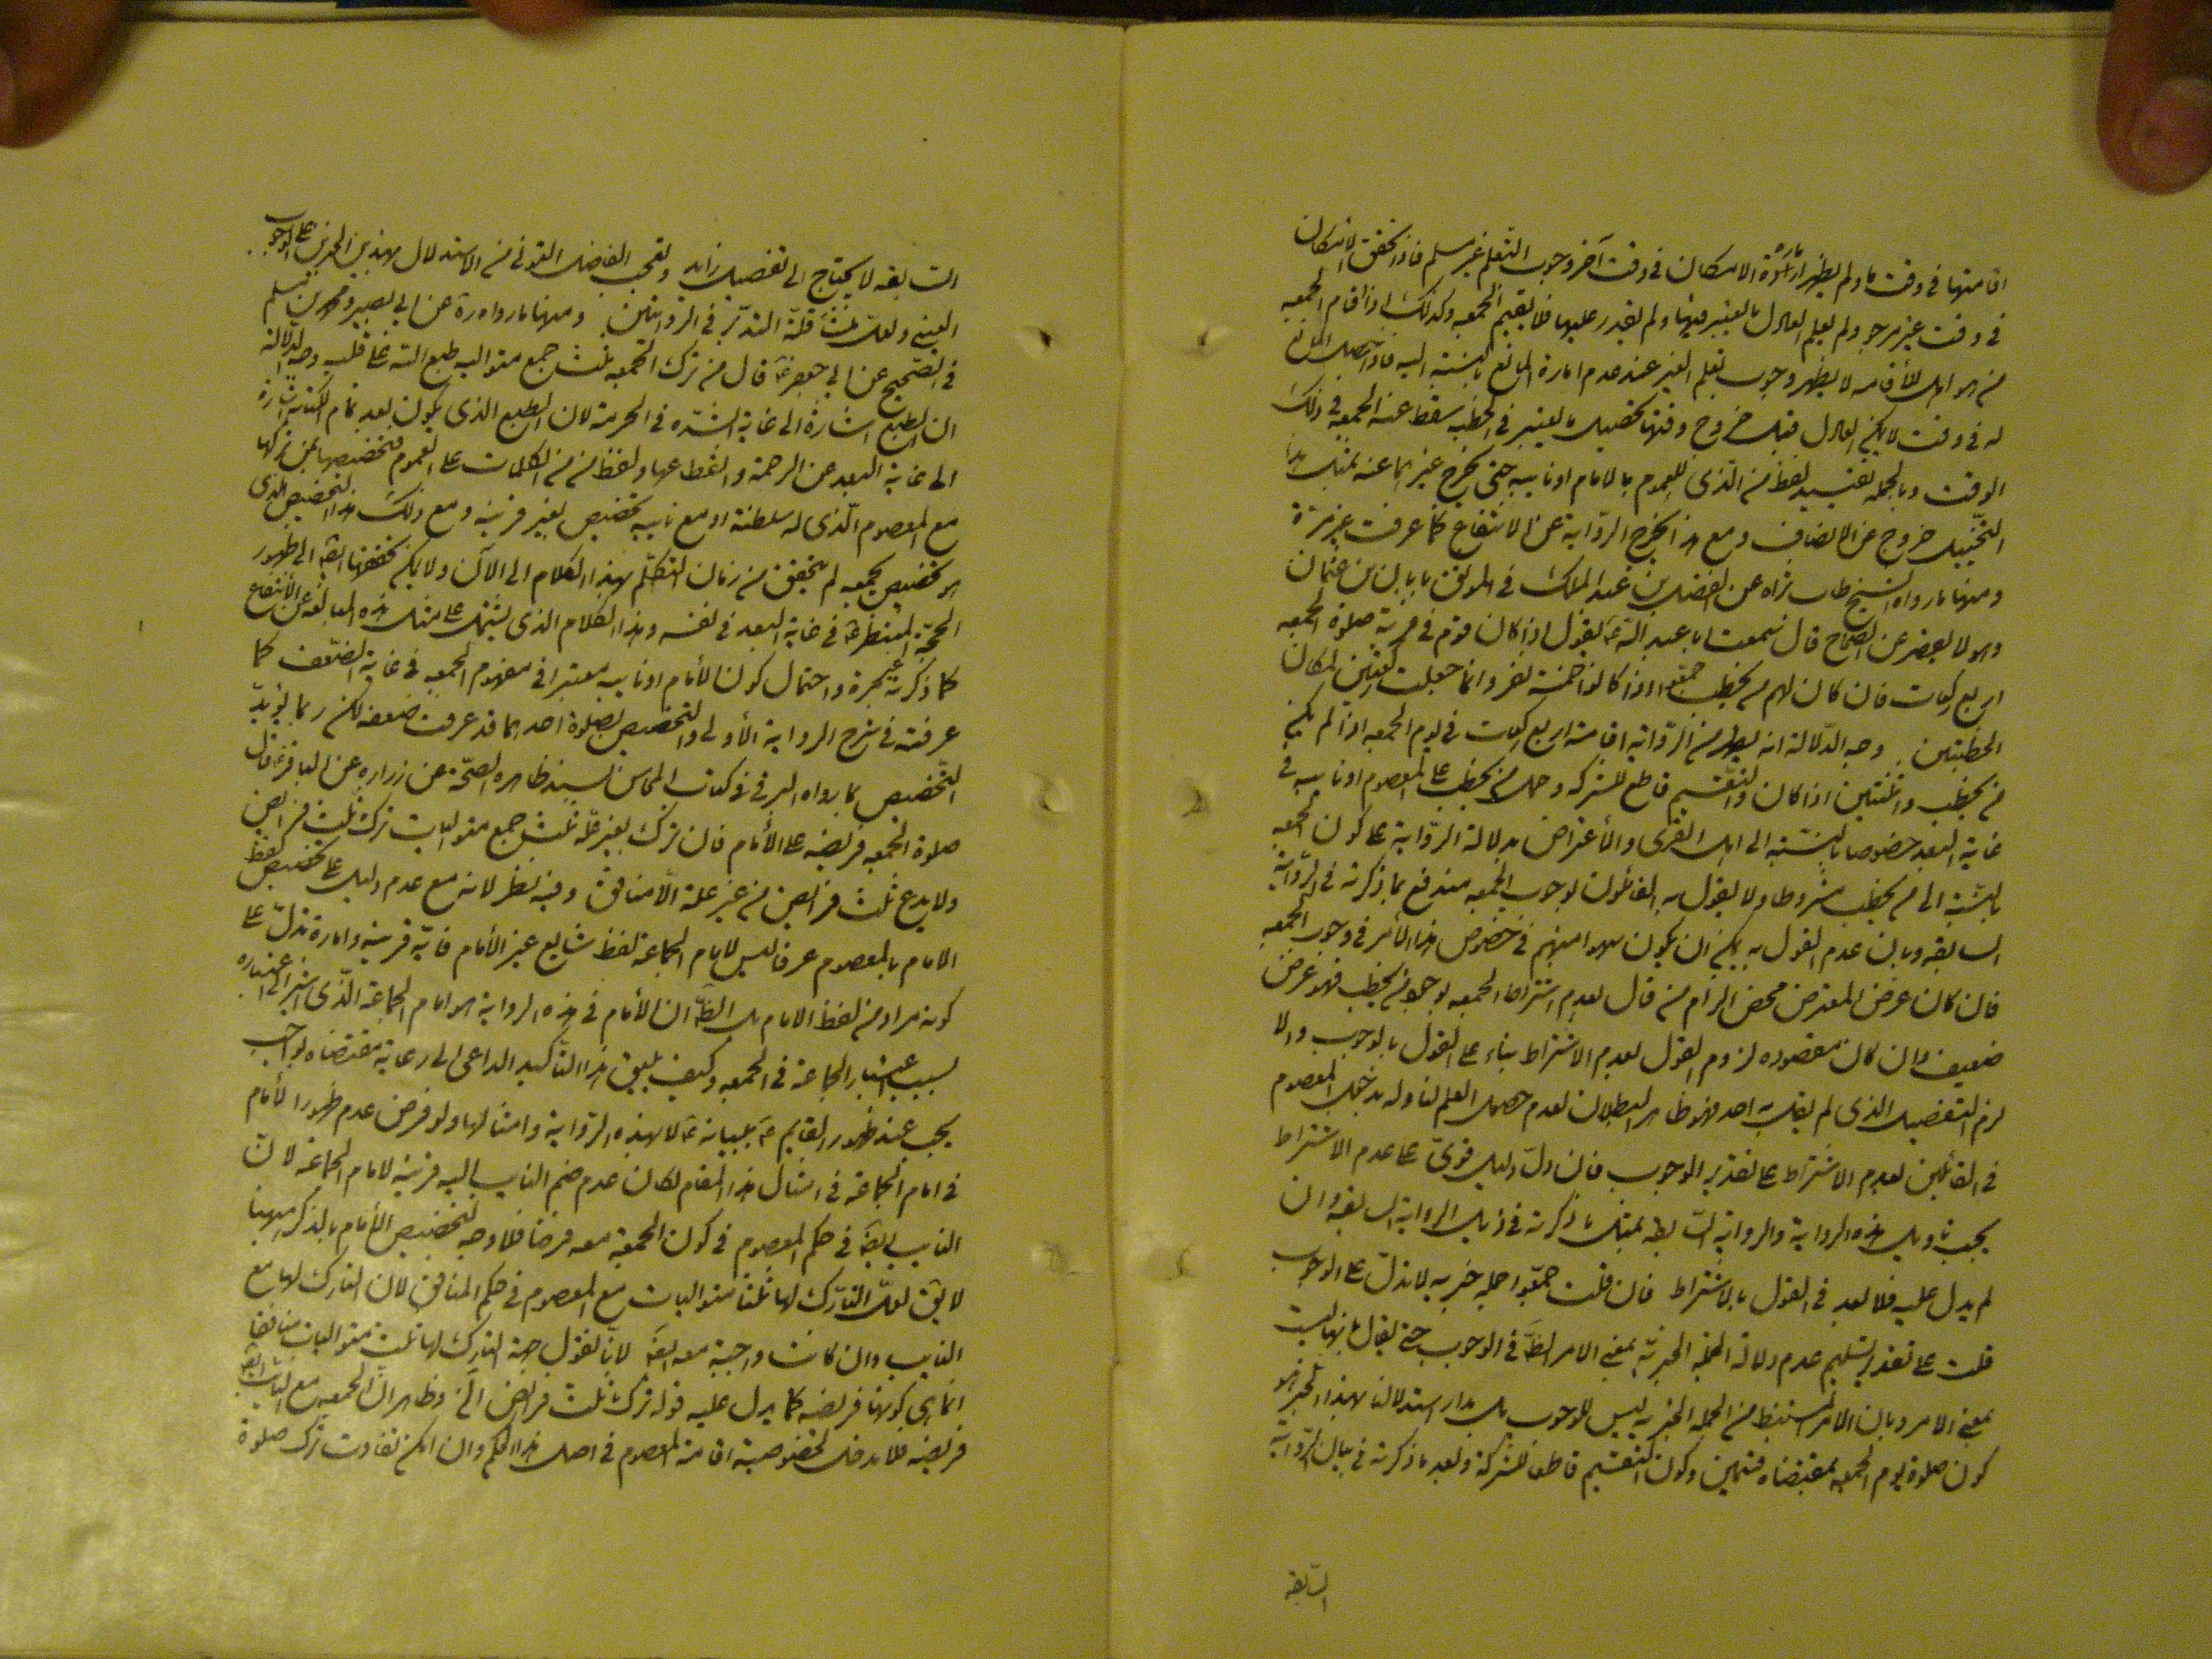 اقامتها في وقت ما ولم يظهر امارة الامكان في وقت آخر وجوب التعلم غير مسلم فاذا تحقق الامكان
في وقت غير مرجو ولم يعلم العادل ما يعتبر فيها ولم يقدر عليها فلا يقيم الجمعه وكذلك اذا اقام الجمعه
من هو اهل للاقامه لا يظهر وجوب تعلم الغير عند عدم امارة المانع بالنسبة اليه فاذا حصل المانع
له في وقت لا يمكن العادل قبل خروج وقتها تحصيل ما يعتبر في الخطبه سقط عنه الجمعه في ذلك
الوقت وبالجمله تقييد لفظ من الذي للعموم بالامام او نايبه حتى يخرج غيرهما عنه بمثل هذا
التخييل خروج عن الانصاف ومع هذا يخرج الرواية عن الانتفاع كما عرفت غير مرة
ومنها ما رواه الشيخ طاب ثراه عن الفضل بن عبد الملك في الموثق بابان بن عثمان
وهو لا يقصر عن الصحاح قال سمعت ابا عبد الله ع يقول اذا كان قوم في قرية صلوا الجمعه
اربع ركعات فان كان لهم من يخطب جمعوا اذا كانوا خمسة نفر وانما جعلت ركعتين لمكان
الخطبتين وجه الدلالة انه يظهر من الرواية اقامة اربع ركعات في يوم الجمعه اذا لم يكن
من يخطب واثنتين اذا كان والتقسيم قاطع للشركه وحمل من يخطب على المعصوم او نايبه في
غاية البعد خصوصا بالنسبة الى اهل القرى والاعتراض بدلالة الرواية على كون الجمعه
بالنسبة الى من يخطب مشروطا ولا يقول به القائلون بوجوب الجمعه مندفع بما ذكرته في الرواية
السابقه وبان عدم القول به يمكن ان يكون سهوا منهم في خصوص هذا الامر في وجوب الجمعه
فان كان غرض المعترض محض الزام من قال بعدم اشتراط الجمعه بوجود من يخطب فهو غرض
ضعيف وان كان مقصوده لزوم القول بعدم الاشتراط بناء على القول بالوجوب والا
لزم التفصيل الذي لم يقل به احد فهو ظاهر البطلان لعدم حصول العلم لنا وله بدخول المعصوم
في القائلين بعدم الاشتراط على تقدير الوجوب فان دل دليل قوي على عدم الاشتراط
يجب تاويل هذه الرواية والرواية السابقه بمثل ما ذكرته في ذيل الرواية السابقه وان
لم يدل عليه فلا بعد في القول بالاشتراط فان قلت جمعوا جملة خبريه لا تدل على الوجوب
قلت على تقدير تسليم عدم دلالة الجملة الخبرية بمعنى الامر الظ في الوجوب حتى يقال بانها ليست
بمعنى الامر وبان الامر المستنبط من الجمله الخبرية ليس للوجوب بل مدار استدلالنا بهذا الخبر هو
كون صلوة يوم الجمعه بمقتضاه قسمين وكون التقسيم قاطعا للشركة وبعد ما ذكرته في بيان الرواية
السابقه
السابقه لا يحتاج الى تفصيل زايد وتعجب الفاضل التوني من الاستدلال بهذين الخبرين على الوجوب
العيني ولعل منشأه قلة التدبر في الروايتين ومنها ما رواه رة عن ابي بصير ومحمد بن مسلم
في الصحيح عن ابي جعفر ع قال من ترك الجمعه ثلث جمع متواليه طبع الله على قلبه وجه الدلالة
ان الطبع اشارة الى غاية الشده في الحرمة لان الطبع الذي يكون بعد تمام الكتابة اشارة
الى غاية البعد عن الرحمة وانقطاعها ولفظ من من الكلمات على العموم فتخصيصها بمن تركها
مع المعصوم الذي له سلطنة او مع نايبه تخصيص بغير قرينة ومع ذلك هذا التخصيص الذي
هو تخصيص بجمعه لم يتحقق من زمان التكلم بهذا الكلام الى الآن ولا يمكن تحققها ايضا الى ظهور
الحجة المنتظر ع في غاية البعد في نفسه وهذا الكلام الذي يشتمل على مثل هذه المبالغه عن الانتفاع
كما ذكرته غير مرة واحتمال كون الامام او نايبه معتبرا في مفهوم الجمعه في غاية الضعف كما
عرفته في شرح الرواية الاولى والتخصيص بصلوة احدهما قد عرفت ضعفه لكن ربما يؤيد
التخصيص بما رواه البرقي في كتاب المحاسن بسند ظاهره الصحة عن زراره عن الباقر ع قال
صلوة الجمعه فريضه على الامام فان ترك بغير علة ثلث جمع متواليات ترك ثلث فرايض
ولا يدع ثلث فرايض من غير علة الا منافق وفيه نظر لانه مع عدم دليل على تخصيص لفظ
الامام بالمعصوم عرفا ليس لامام الجماعة لفظ شايع غير الامام فاية قرينة وامارة تدل على
كونه مرادا من لفظ الامام بل الظ ان الامام في هذه الرواية هو امام الجماعة الذي اشير الى اعتباره
بسبب اعتبار الجماعة في الجمعه وكيف يليق هذا التاكيد الداعي الى رعاية مقتضاه لواجب
يجب عند ظهور القايم ع ببيانه ع لا بهذه الرواية وامثالها ولو فرض عدم ظهور الامام
في امام الجماعة في امثال هذا المقام لكان عدم ضم النايب اليه قرينة لامام الجماعة لان
النايب ايضا في حكم المعصوم في كون الجمعة معه فرضا فلا وجه لتخصيص الامام بالذكر ههنا
لا يق لعل التارك لها ثلثا متواليات مع المعصوم في حكم المنافق لان التارك لها مع
النايب وان كانت واجبة معه ايضا لانا نقول جهة التارك لها ثلث متواليات منافقا
انما هي كونها فريضه كما يدل عليه قوله ترك ثلث فرايض الخ وظاهر ان الجمعه مع النايب ايضا
فريضه فلا مدخل لخصوصية اقامة المعصوم في اصل هذا الحكم وان امكن تفاوت ترك صلوة